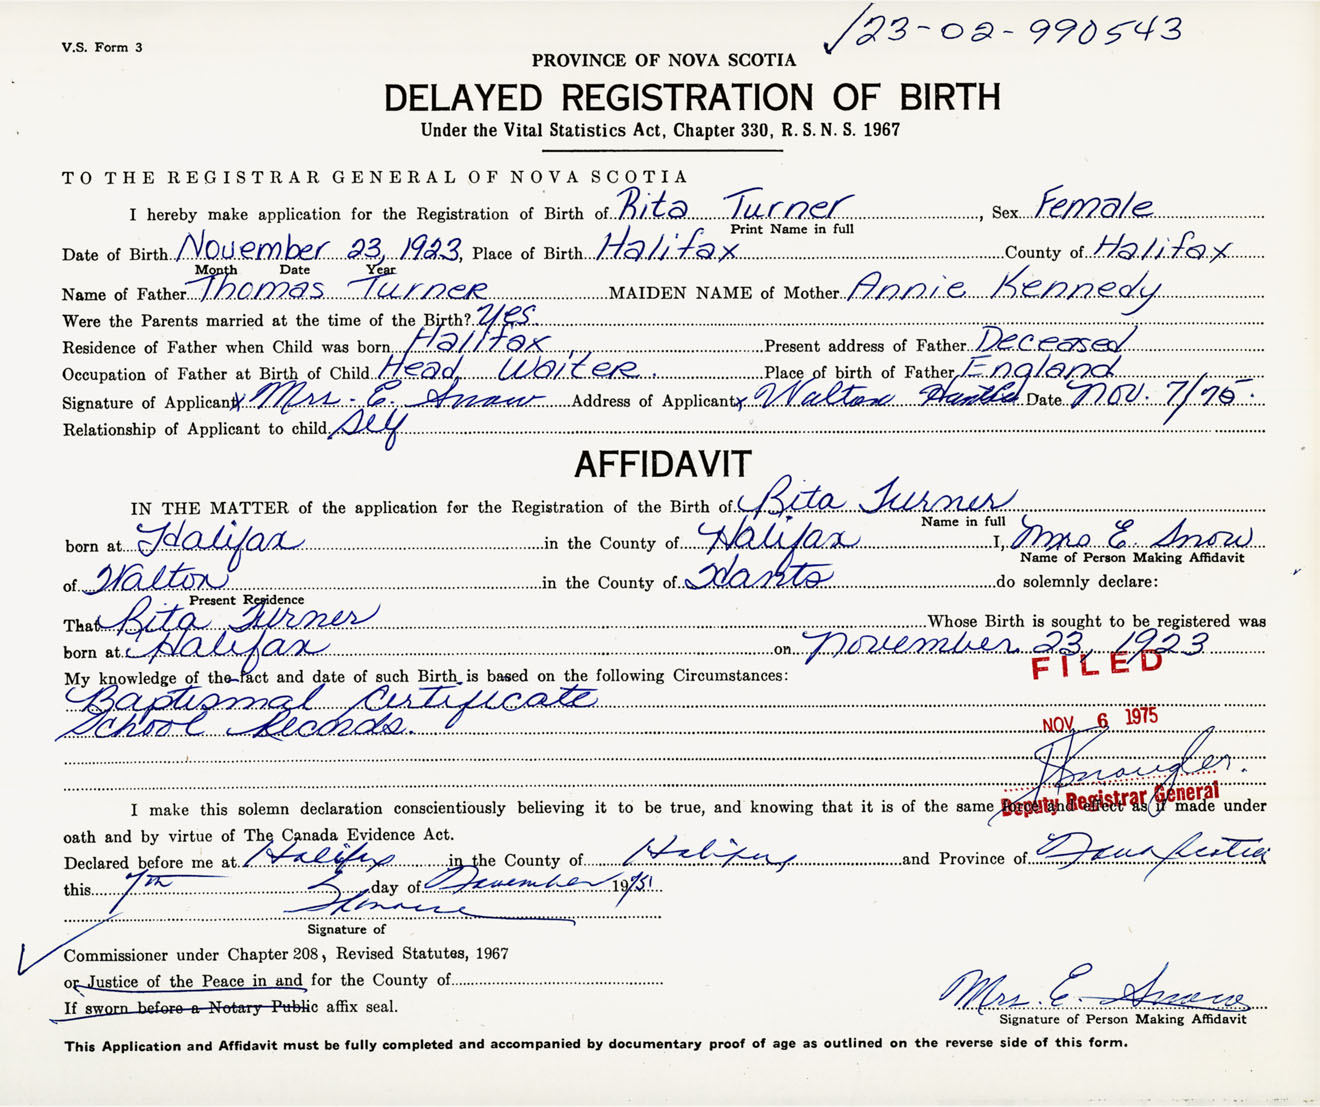 V.S. Form 3
123-02-990543
PROVINCE OF NOVA SCOTIA
DELAYED REGISTRATION OF BIRTH
Under the Vital Statistics Act, Chapter 330, R. S. N. S. 1967
TO THE REGISTRAR GENERAL OF NOVA SCOTIA
I hereby make application for the Registration of Birth of Rita Turner, Sex Female
Print Name in full
Date of Birth November 23, 1923, Place of Birth Halifax County of Halifax
Month Date Year
Name of Father Thomas Turner MAIDEN NAME of Mother Annie Kennedy
Were the Parents married at the time of the Birth? Yes
Residence of Father when Child was born Halifax Present address of Father Deceased
Occupation of Father at Birth of Child Head Waiter. Place of birth of Father England
Signature of Applicant x Mrs. E. Snow Address of Applicant x Walton Hants Date Nov. 7/75.
Relationship of Applicant to child Self
AFFIDAVIT
IN THE MATTER of the application for the Registration of the Birth of Rita Turner
Name in full
born at Halifax in the County of Halifax I, Mrs E. Snow
Name of Person Making Affidavit
of Walton in the County of Hants do solemnly declare:
Present Residence
That Rita Turner Whose Birth is sought to be registered was
born at Halifax on November 23, 1923
FILED
My knowledge of the fact and date of such Birth is based on the following Circumstances:
Baptismal Certificate
School Records.
NOV. 6 1975
Deputy Registrar General
I make this solemn declaration conscientiously believing it to be true, and knowing that it is of the same force and effect as if made under
oath and by virtue of The Canada Evidence Act.
Declared before me at Halifax in the County of Halifax and Province of Nova Scotia
this 7th day of November 1975
Signature of
Commissioner under Chapter 208, Revised Statutes, 1967
or Justice of the Peace in and for the County of
If sworn before a Notary Public affix seal.
Mrs. E. Snow
Signature of Person Making Affidavit
This Application and Affidavit must be fully completed and accompanied by documentary proof of age as outlined on the reverse side of this form.